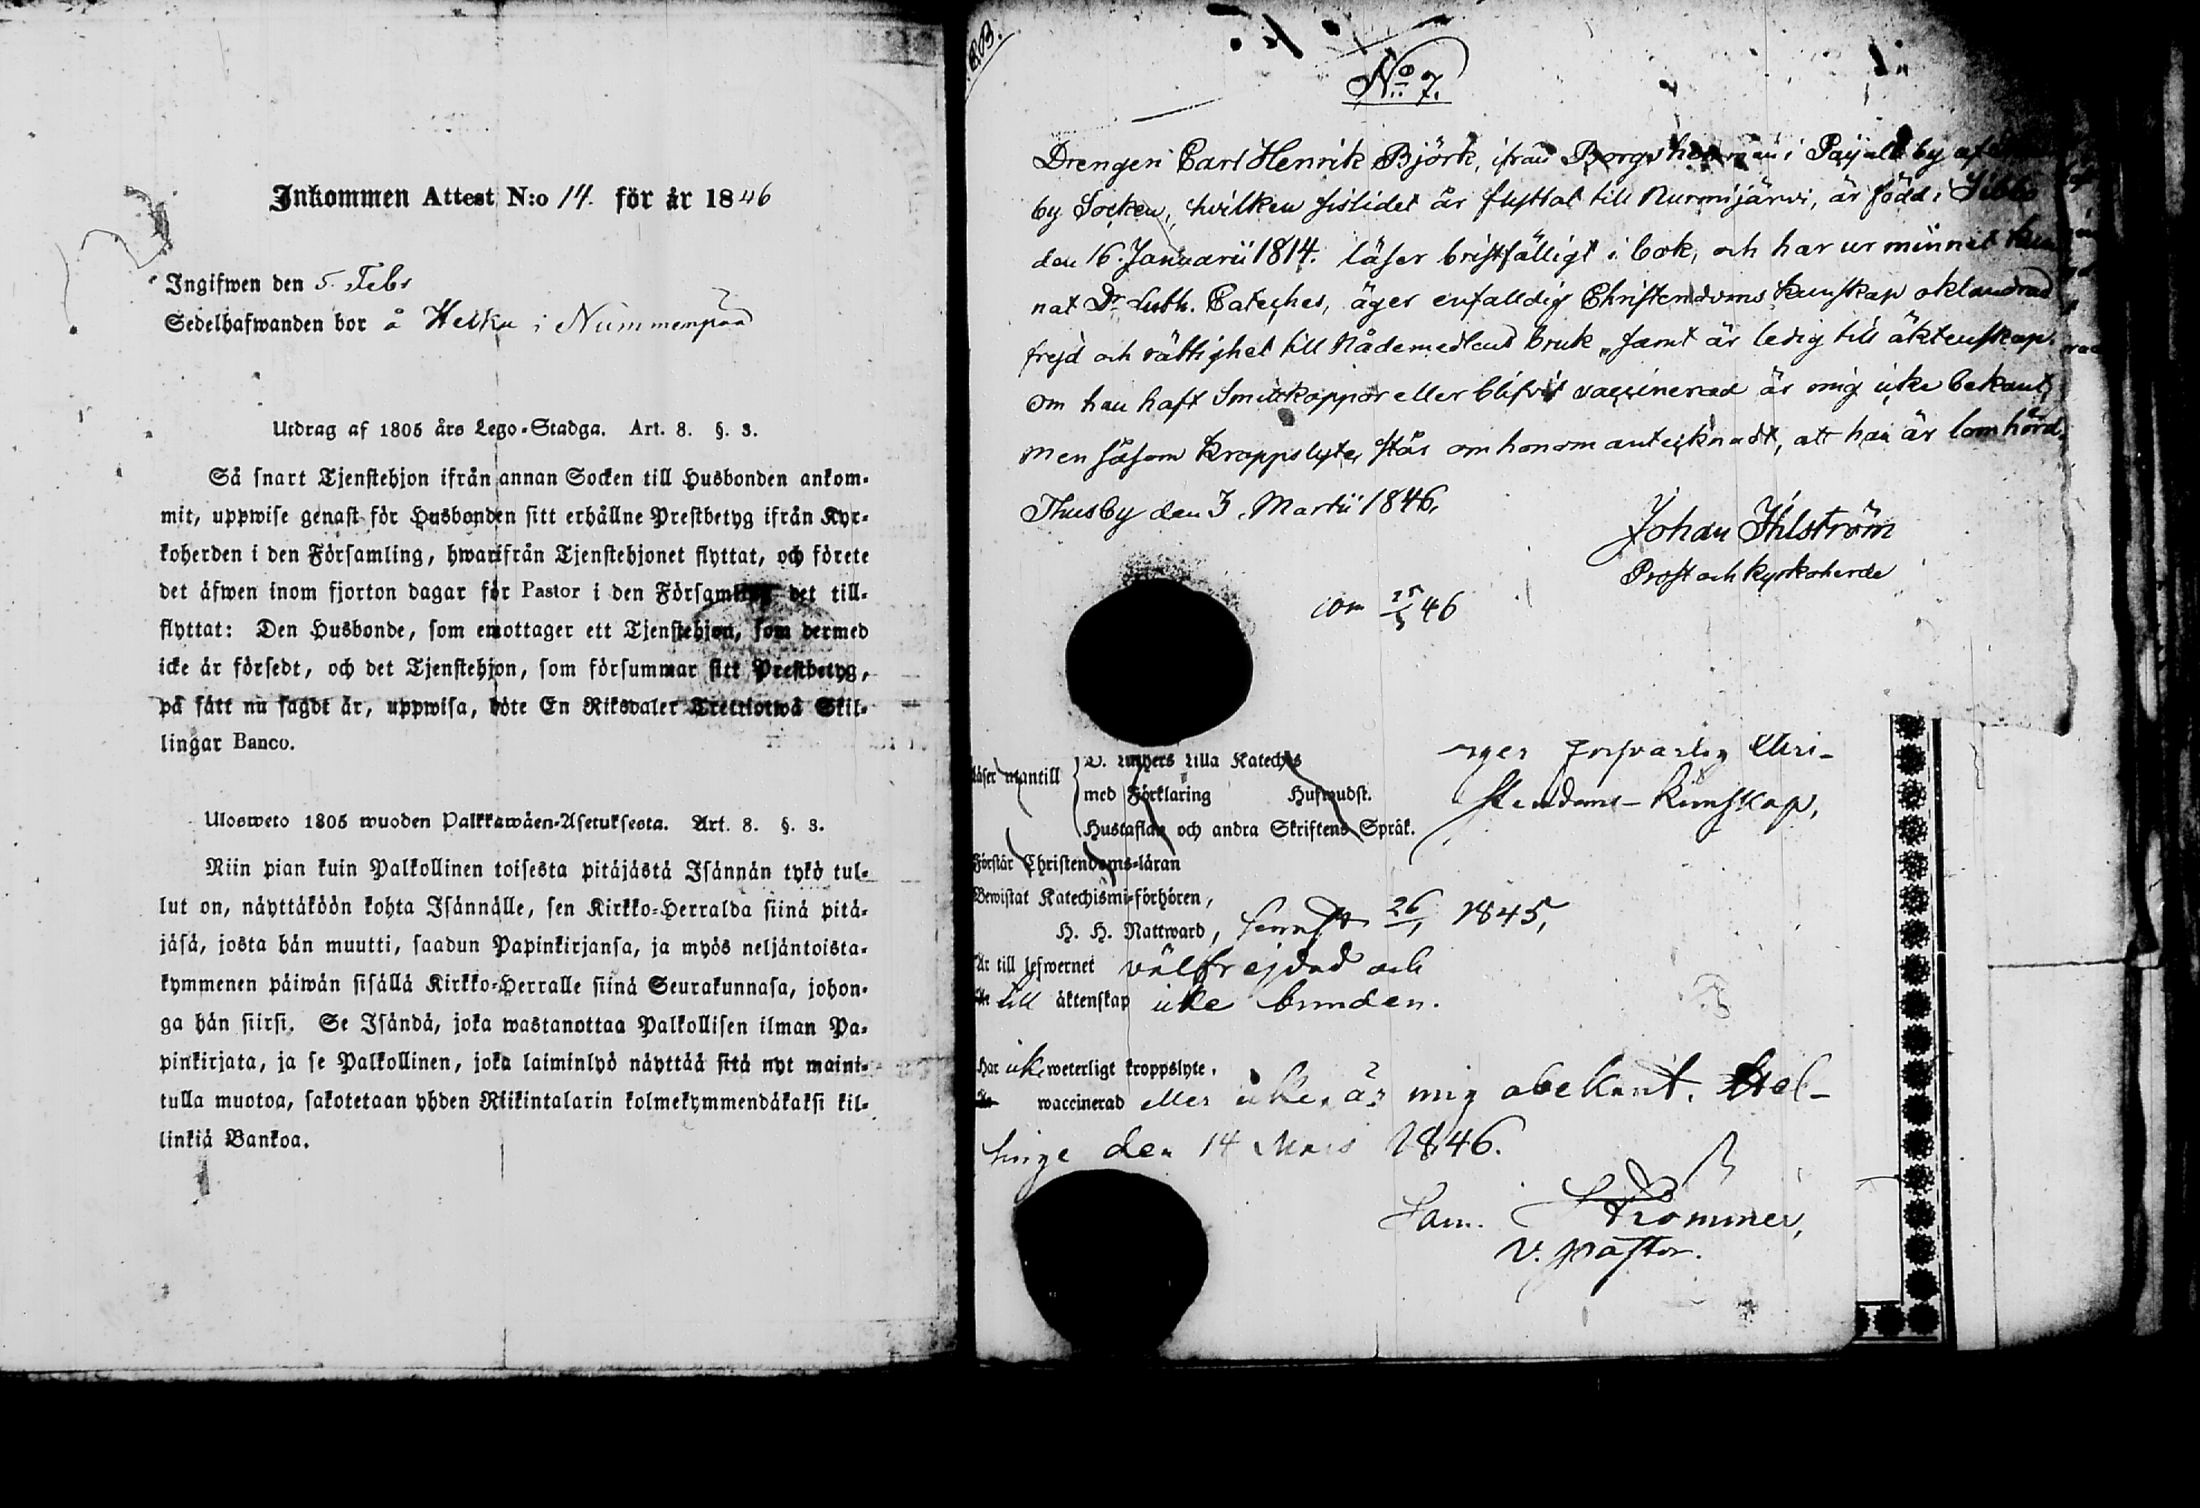 Inkommen Attest N:o 14. för år 1846
Ingifwen den 5. Febr
Sedelhafwanden bor å Heiku i Nummenpää
Utdrag af 1805 års Lego-Stadga. Art. 8. §. 3.
Så snart Tjenstehjon ifrån annan Socken till Husbonden ankom-
mit, uppwise genast för Husbonden sitt erhållne Prestbetyg ifrån Kyr-
koherden i den Församling, hwarifrån Tjenstehjonet flyttat, och förete
det äfwen inom fjorton dagar för Pastor i den Församling det till-
flyttat: Den Husbonde, som emottager ett Tjenstehjon, som dermed
icke är försedt, och det Tjenstehjon, som försummar sitt Prestbetyg,
på sätt nu sagdt är, uppwisa, böte En Riksdaler Trettiotwå Skil-
lingar Banco.
Ulosweto 1805 wuoden Palkkawäen-Asetuksesta. Art. 8. §. 3.
Niin pian kuin Palkollinen toisesta pitäjästä Isännän tykö tul-
lut on, näyttäköön kohta Isännälle, sen Kirkko-Herralda siinä pitä-
jäsä, josta hän muutti, saadun Papinkirjansa, ja myös neljäntoista-
kymmenen päiwän sisällä Kirkko-Herralle siinä Seurakunnasa, johon-
ga hän siirsi. Se Isändä, joka wastanottaa Palkollisen ilman Pa-
pinkirjata, ja se Palkollinen, joka laiminlyö näyttää sitä nyt maini-
tulla muotoa, sakotetaan yhden Riikintalarin kolmekymmendäkaksi kil-
linkiä Bankoa.
No 7.
Drengen Carl Henrik Björk, ifrån i by af
by Socken, hvilken sistidet år flyttat till Nurmijärvi, är född i Sibbo
den 16. Januarii 1814. läser bristfälligt i bok, och har ur minnet
nat Dr Luth. Cateches, äger enfalldig Christendoms kunskap oklandrad
frejd och rättighet till Nådemedlens bruk, samt är ledig till äktenskap.
om han haft Smittkoppor eller blifvit vaccinerad är mig icke bekant,
men såsom kroppslyte, står om honom antecknadt, att han är lomhörd.
Thusby den 3. Martii 1846.
Johan Ihlström
Prost och Kyrkoherde
46
Läser utantill
D. Luthers Lilla Kateches
med Förklaring Hufwudst.
Hustaflan och andra Skriftens Språk.
äger försvarlig Chri-
stendoms-Kunskap,
Förstår Christendoms-läran
Bewistat Katechismi-förhören,
H. H. Nattward, 26 1845,
Är till lefwernet välfrejdad och
till äktenskap icke bunden.
Har icke weterligt kroppslyte.
waccinerad eller icke, är mig obekant. Hel-
singe den 14 Mars 1846.
Sam. Strömmer,
V. Pastor.